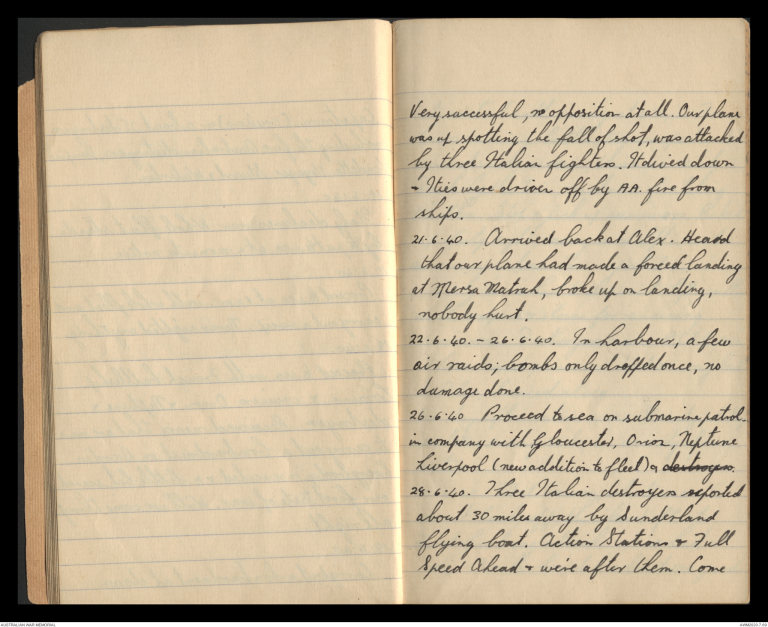 Very successful, no opposition at all. Our plane
was up spotting the fall of shot, was attacked
by three Italian fighters. It dived down
& Ities were driven off by AA. fire from
ships.
21.6.40. Arrived back at Alex. Heard
that our plane had made a forced landing
at Mersa Matruh, broke up on landing,
nobody hurt.
22.6.40. - 26.6.40. In harbour, a few
air raids; bombs only dropped once, no
damage done.
26.6.40 Proceed to sea on submarine patrol
in company with Gloucester, Orion, Neptune
Liverpool (new addition to fleet) & destroyers.
28.6.40. Three Italian destroyers reported
about 30 miles away by Sunderland
flying boat. Action Stations & Full
Speed Ahead & we're after them. Come
AUSTRALIAN WAR MEMORIAL